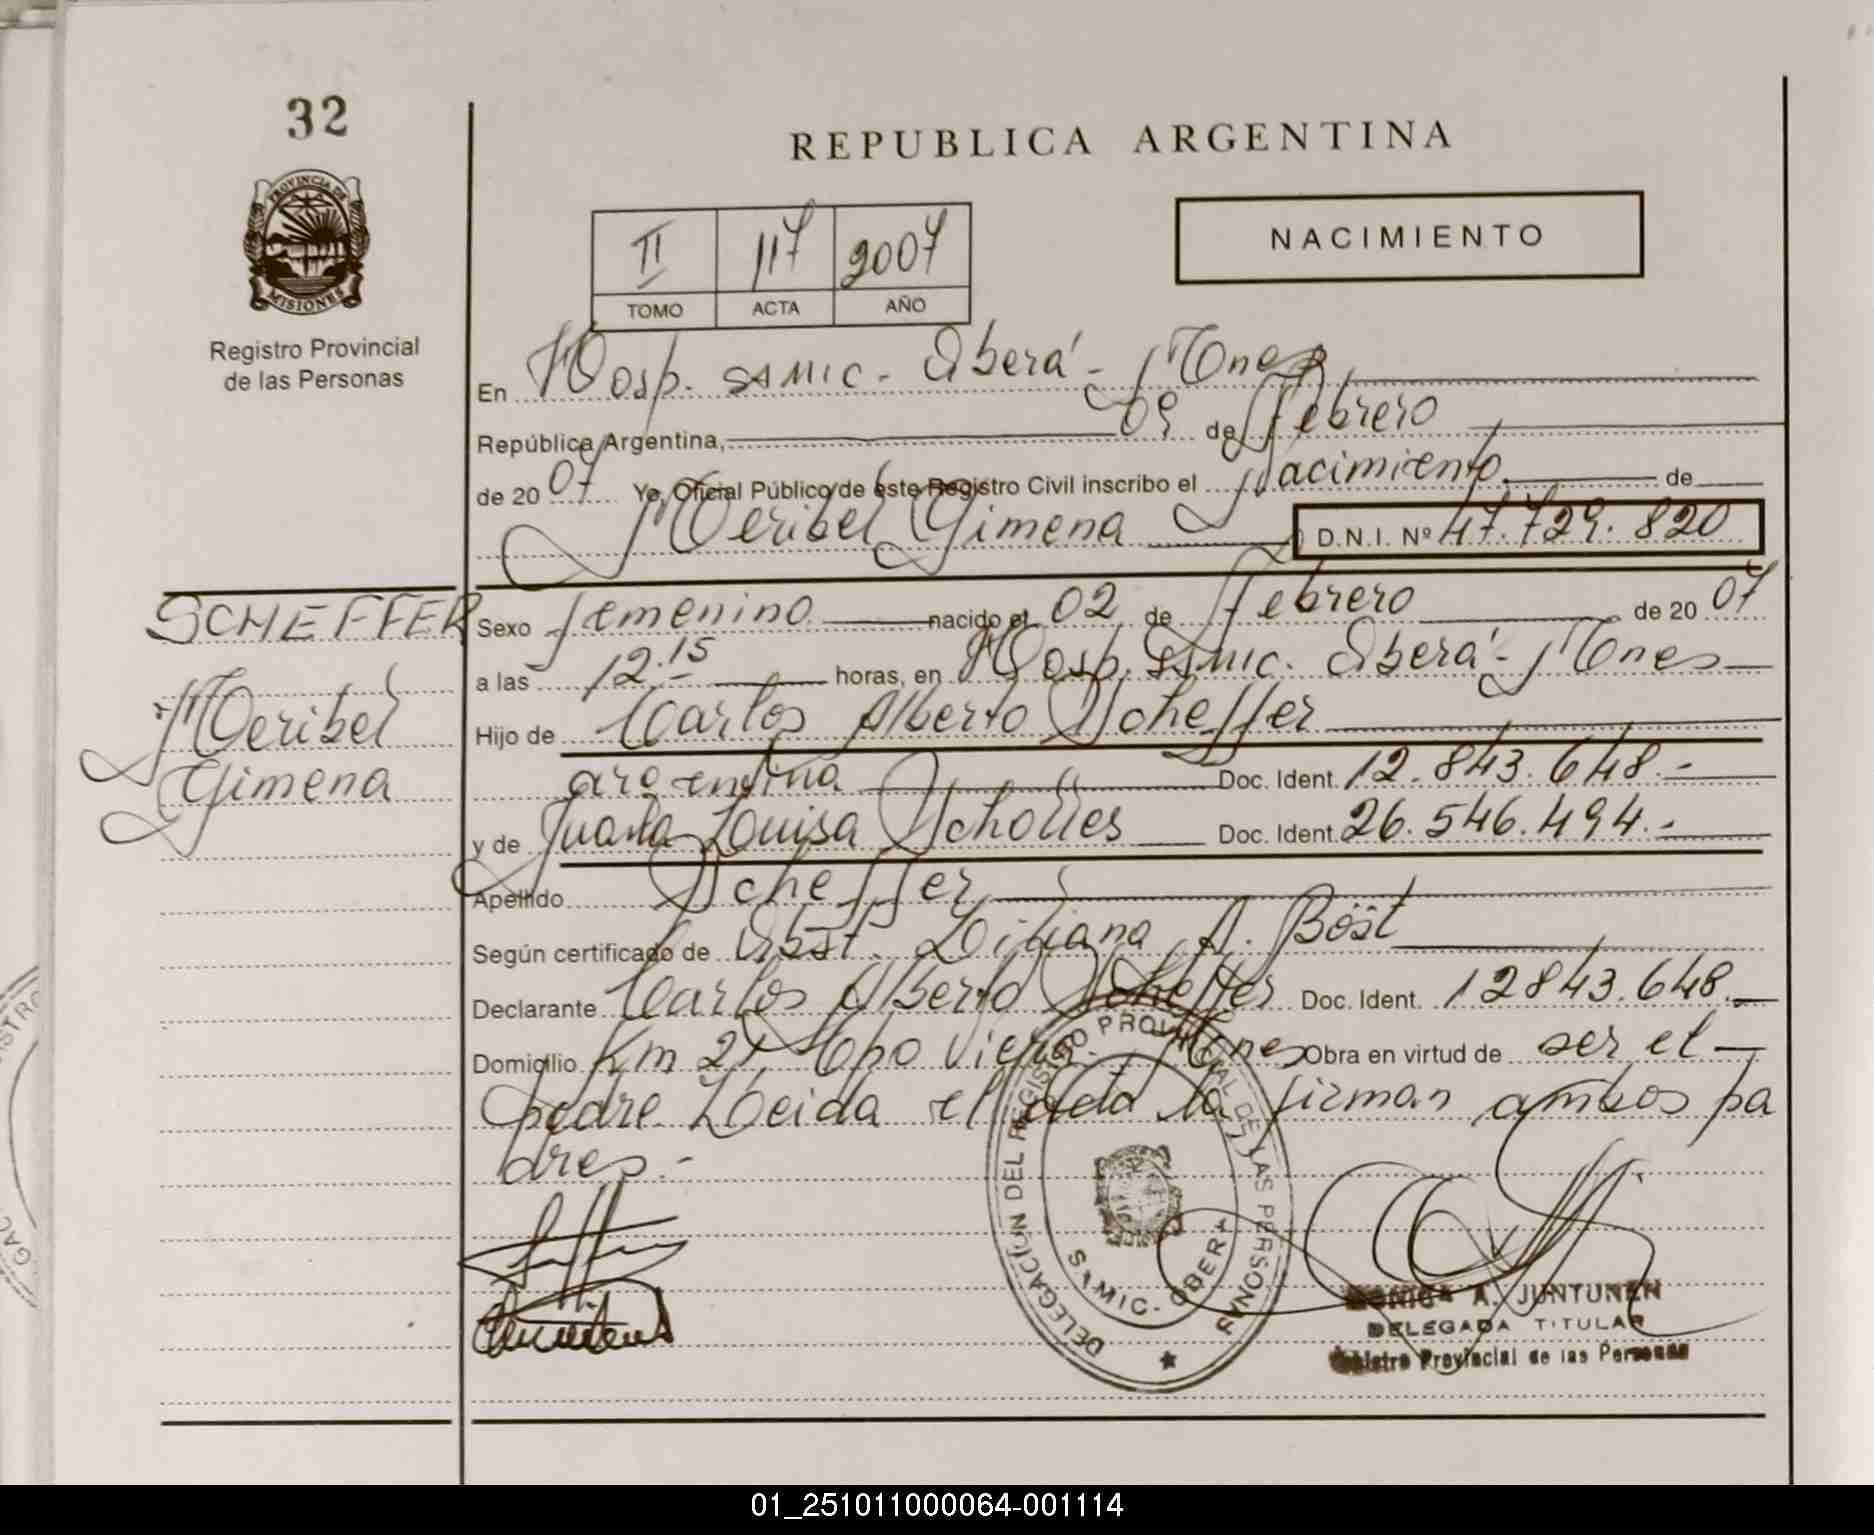 32
REPUBLICA ARGENTINA
PROVINCIA DE
MISIONES
Registro Provincial
de las Personas
II 117 2007
TOMO ACTA AÑO
NACIMIENTO
En Hosp. SAMIC. Oberá - Mnes
República Argentina, 09 de Febrero
de 2007 Yo, Oficial Público de este Registro Civil inscribo el Nacimiento de
Meribel Gimena D.N.I. Nº 47.729.820
SCHEFFER
Meribel
Gimena
Sexo femenino nacido el 02 de Febrero de 2007
a las 12.15 horas, en Hosp. SAMIC. Oberá - Mnes
Hijo de Carlos Alberto Scheffer
argentina Doc. Ident. 12.843.648.-
y de Juana Louisa Scholles Doc. Ident. 26.546.494.-
Apellido Scheffer
Según certificado de Obst. Liliana A. Böst
Declarante Carlos Alberto Scheffer Doc. Ident. 12843.648.-
Domicilio Km 21 Cpo Viera. Mnes Obra en virtud de ser el
padre Leida el acta la firman ambos pa
dres.-
DELEGACION DEL REGISTRO PROVINCIAL DE LAS PERSONAS
SAMIC - OBERA
MONICA A. JUNTUNEN
DELEGADA TITULAR
Registro Provincial de las Personas
01_251011000064-001114